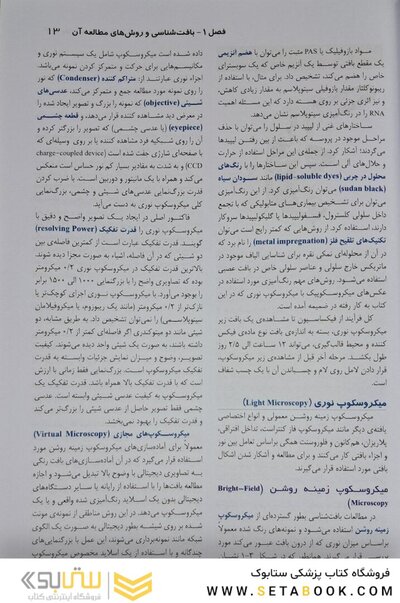 فصل ۱- بافت‌شناسی و روش‌های مطالعه آن ۱۳
مواد بازوفیلیک یا PAS مثبت را می‌توان با هضم آنزیمی
یک مقطع بافتی توسط یک آنزیم خاص که یک سوبسترای
خاص را هضم می‌کند، تشخیص داد. برای مثال، با استفاده از
ریبونوکلئاز مقدار بازوفیلی سیتوپلاسم به مقدار زیادی کاهش،
و نیز اثری جزئی بر روی هسته دارد که این مسئله اهمیت
RNA را در رنگ‌آمیزی سیتوپلاسم نشان می‌دهد.
ساختارهای غنی از لیپید در سلول را می‌توان با حذف
مراحل موجود در پروسه‌ای که باعث از بین رفتن لیپیدها
می‌گردند؛ آشکار کرد. از جمله‌ی این مراحل استفاده از حرارت
و حلال‌های آلی است. سپس این ساختارها را با رنگ‌های
محلول در چربی (lipid-soluble dyes) مانند سودان سیاه
(sudan black) می‌توان رنگ‌آمیزی کرد. از این رنگ‌آمیزی
می‌توان برای تشخیص بیماری‌های متابولیکی که با تجمع
داخل سلولی کلسترول، فسفولیپیدها یا گلیکولیپیدها سروکار
دارند، استفاده کرد. از روش‌هایی که کمتر رایج است می‌توان
تکنیک‌های تلقیح فلز (metal impregnation) را نام برد که
در آن از محلول‌های نمکی نقره برای شناسایی الیاف موجود در
ماتریکس خارج سلولی و عناصر سلولی خاص در بافت عصبی
استفاده می‌گردد. روش‌های مهم رنگ‌آمیزی مورد استفاده در
عکس‌های میکروسکوپیک با میکروسکوپ نوری که در این
کتاب به کار رفته در ضمیمه آمده است.
کل فرآیند از فیکساسیون تا مشاهده‌ی یک بافت زیر
میکروسکوپ نوری، بسته به اندازه‌ی بافت نوع ماده‌ی فیکس
کننده و محیط قالب‌گیری، می‌تواند ۱۲ ساعت الی ۲/۵ روز
طول بکشد. مرحله آخر قبل از مشاهده‌ی زیر میکروسکوپ،
قرار دادن لامل روی لام و چسباندن آن با یک چسب شفاف
است.
میکروسکوپ نوری (Light Microscopy)
میکروسکوپ زمینه روشن معمولی و انواع اختصاصی
یافته‌ی دیگر مانند میکروسکوپ فاز کنتراست، تداخل افتراقی،
پلاریزان، هم‌کانون و فلورسنت همگی براساس تعامل بین نور
و اجزاء بافتی کار می‌کنند و برای مطالعه و آشکار شدن اشکال
بافتی مورد استفاده قرار می‌گیرند.
میکروسکوپ زمینه روشن (Bright-Field
Microscopy)
در مطالعات بافت‌شناسی بطور گسترده‌ای از میکروسکوپ
زمینه روشن استفاده می‌شود و نمونه‌های رنگ شده معمولاً
براساس میزان نوری که از درون بافت عبور می‌کند مورد
داده شده است میکروسکوپ شامل یک سیستم نوری و
مکانیسم‌هایی برای حرکت و متمرکز کردن نمونه می‌باشد.
اجزاء نوری عبارتند از: متراکم کننده (Condenser) که نور
را روی نمونه مورد مطالعه جمع و متمرکز می‌کند، عدسی‌های
شیئی (objective) که نمونه را بزرگ و تصویر ایجاد شده را
در معرض دید مشاهده کننده قرار می‌دهد، و قطعه چشمی
(eyepiece) (یا عدسی چشمی) که تصویر را بزرگتر کرده و
آن را روی شبکیه فرد مشاهده کننده یا بر روی وسیله‌ای که
با صفحه‌ای شارژی جفت شده است (charge-coupled device
CCD) و به شدت به مقادیر بسیار کم نور حساس است منعکس
می‌کند و همراه با یک مانیتور و دوربین است. با ضرب کردن
قدرت بزرگنمایی عدسی‌های شیئی و چشمی، بزرگنمایی
کلی میکروسکوپ نوری به دست می‌آید.
فاکتور اصلی در ایجاد یک تصویر واضح و دقیق با
میکروسکوپ نوری را قدرت تفکیک (resolving Power)
گویند. قدرت تفکیک عبارت است از کمترین فاصله‌ی بین
دو شیئی که در آن فاصله، اشیاء به صورت مجزا دیده شوند.
بالاترین قدرت تفکیک در میکروسکوپ نوری ۰/۲ میکرومتر
است که تصاویر واضحی را با بزرگنمایی ۱۰۰۰ الی ۱۵۰۰ برابر
را بوجود می‌آورد. با میکروسکوپ نوری اجزای کوچک‌تر یا
نازک‌تر از ۰/۲ میکرومتر (مانند یک ریبوزوم، یا میکروفیلامان
سیتوپلاسمی) را نمی‌توان تشخیص داد. به طریق مشابه، دو
شیئی مانند دو میتوکندری اگر فاصله‌ای کمتر از ۰/۲ میکرومتر
داشته باشند، به صورت یک شیئی واحد دیده می‌شوند. کیفیت
تصویر، وضوح و میزان نمایش جزئیات وابسته به قدرت
تفکیک میکروسکوپ است. بزرگنمایی فقط زمانی با ارزش
است که با قدرت تفکیک بالا همراه باشد. قدرت تفکیک یک
میکروسکوپ به کیفیت عدسی شیئی وابسته است. عدسی
چشمی فقط تصویر حاصل از عدسی شیئی را بزرگ‌تر می‌کند
و قدرت تفکیک را بهبود نمی‌بخشد.
میکروسکوپ‌های مجازی (Virtual Microscopy)
معمولاً برای آماده‌سازی‌های میکروسکوپ زمینه روشن مورد
استفاده قرار می‌گیرد که در آن آماده‌سازی‌های بافت رنگی
به تصاویری دیجیتالی با وضوح بالا تبدیل می‌شود و اجازه
مطالعه بافت‌ها را با استفاده از رایانه یا سایر دستگاه‌های
دیجیتالی بدون یک اسلاید رنگ‌آمیزی شده واقعی و یا یک
میکروسکوپ می‌دهد. در این روش مناطقی از نمونه‌ی مونت
شده بر روی شیشه بطور دیجیتالی به صورت یک الگوی
شبکه مانند نمونه‌برداری می‌شوند، این عمل با بزرگنمایی‌های
چندگانه و با استفاده از یک اسلاید مخصوص میکروسکوپ
فروشگاه کتاب پزشکی ستابوک
WWW.SETABOOK.COM
ستابوک
فروشگاه اینترنتی کتاب